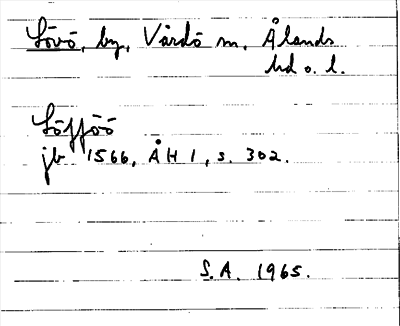 Lövö, by, Vårdö sn, Ålands
hd o. l.
Löfföö
jb 1566, ÅH 1, s. 302.
S.A. 1965.